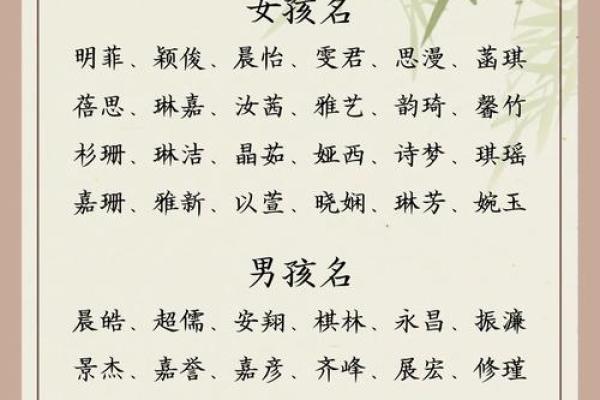 女孩名
明菲、颖俊、晨怡、雯君、思漫、菡琪
蓓思、琳嘉、汝茜、雅艺、韵琦、馨竹
杉珊、琳洁、晶茹、娅西、诗梦、琪瑶
嘉珊、雅新、以萱、晓娴、琳芳、婉玉
男孩名
晨皓、超儒、安翔、棋林、永昌、振濂
景杰、嘉誉、嘉彦、齐峰、展宏、修瑾